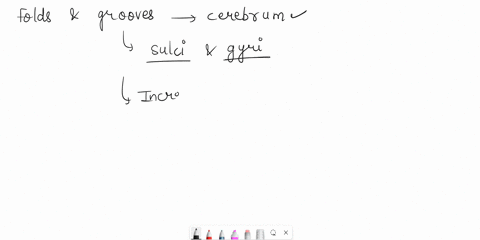 Folds & grooves → cerebrum ✓
↳ sulci & gyri
↳ Incr